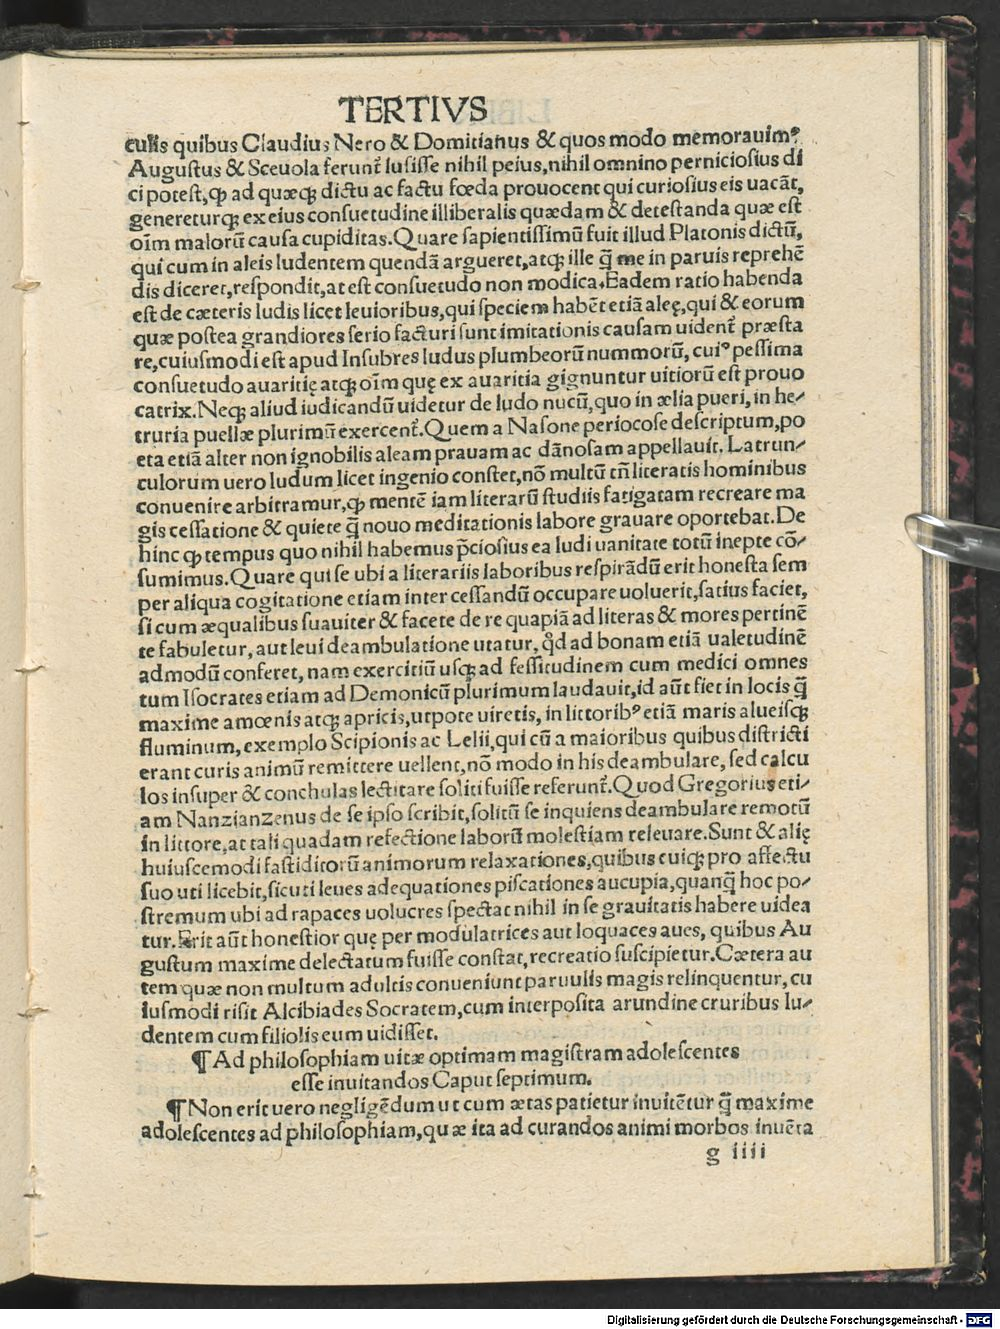 TERTIVS
culis quibus Claudius Nero & Domitianus & quos modo memorauimꝰ
Augustus & Sceuola ferunt᷑ lusisse nihil peius,nihil omnino perniciosius di
ci potest,ꝙ ad quæqꝫ dictu ac factu fœda prouocent qui curiosius eis uacāt,
genereturqꝫ ex eius consuetudine illiberalis quædam & detestanda quæ est
oīm malorū causa cupiditas.Quare sapientissimū fuit illud Platonis dictū,
qui cum in aleis ludentem quendā argueret,atqꝫ ille q̄ me in paruis reprehē
dis diceret,respondit,at est consuetudo non modica.Eadem ratio habenda
est de cæteris ludis licet leuioribus,qui speciem habēt etiā aleę,qui & eorum
quæ postea grandiores serio facturi sunt imitationis causam uident᷑ præsta
re,cuiusmodi est apud Insubres ludus plumbeorū nummorū, cuiꝰ pessima
consuetudo auaritię atqꝫ oīm quę ex auaritia gignuntur uitiorū est prouo
catrix.Neqꝫ aliud iudicandū uidetur de ludo nucū,quo in ælia pueri, in he⸗
truria puellæ plurimū exercent᷑.Quem a Nasone periocose descriptum,po
eta etiā alter non ignobilis aleam prauam ac dānosam appellauit. Latrun⸗
culorum uero ludum licet ingenio constet,nō multū tn̄ literatis hominibus
conuenire arbitramur,ꝙ mentē iam literarū studiis fatigatam recreare ma
gis cessatione & quiete q̄ nouo meditationis labore grauare oportebat.De
hinc ꝙ tempus quo nihil habemus p̄ciosius ea ludi uanitate totū inepte cō⸗
sumimus.Quare qui se ubi a literariis laboribus respirādū erit honesta sem
per aliqua cogitatione etiam inter cessandū occupare uoluerit,satius faciet,
si cum æqualibus suauiter & facete de re quapiā ad literas & mores pertinē
te fabuletur, aut leui deambulatione utatur, qd̛ ad bonam etiā ualetudinē
admodū conferet, nam exercitiū usqꝫ ad fessitudinem cum medici omnes
tum Isocrates etiam ad Demonicū plurimum laudauit,id aūt fiet in locis q̄
maxime amœnis atqꝫ apricis,utpote uiretis, in littoribꝰ etiā maris alueisqꝫ
fluminum, exemplo Scipionis ac Lelii,qui cū a maioribus quibus districti
erant curis animū remittere uellent,nō modo in his deambulare, sed calcu
los insuper & conchulas lectitare soliti fuisse referunt᷑.Quod Gregorius eti⸗
am Nanzianzenus de se ipso scribit,solitū se inquiens deambulare remotū
in littore,ac tali quadam refectione laborū molestiam releuare.Sunt & alię
huiuscemodi fastiditorū animorum relaxationes,quibus cuiqꝫ pro affectu
suo uti licebit,sicuti leues adequationes piscationes aucupia,quanq̄ hoc po⸗
stremum ubi ad rapaces uolucres spectat nihil in se grauitatis habere uidea
tur.Erit aūt honestior quę per modulatrices aut loquaces aues, quibus Au
gustum maxime delectatum fuisse constat, recreatio suscipietur.Cætera au
tem quæ non multum adultis conueniunt paruulis magis relinquentur, cu
iusmodi risit Alcibiades Socratem,cum interposita arundine cruribus lu⸗
dentem cum filiolis eum uidisset.
¶ Ad philosophiam uitæ optimam magistram adolescentes
esse inuitandos Caput septimum.
¶ Non erit uero negligēdum ut cum ætas patietur inuitētur q̄ maxime
adolescentes ad philosophiam,quæ ita ad curandos animi morbos inuēta
g iiii
Digitalisierung gefördert durch die Deutsche Forschungsgemeinschaft - DFG